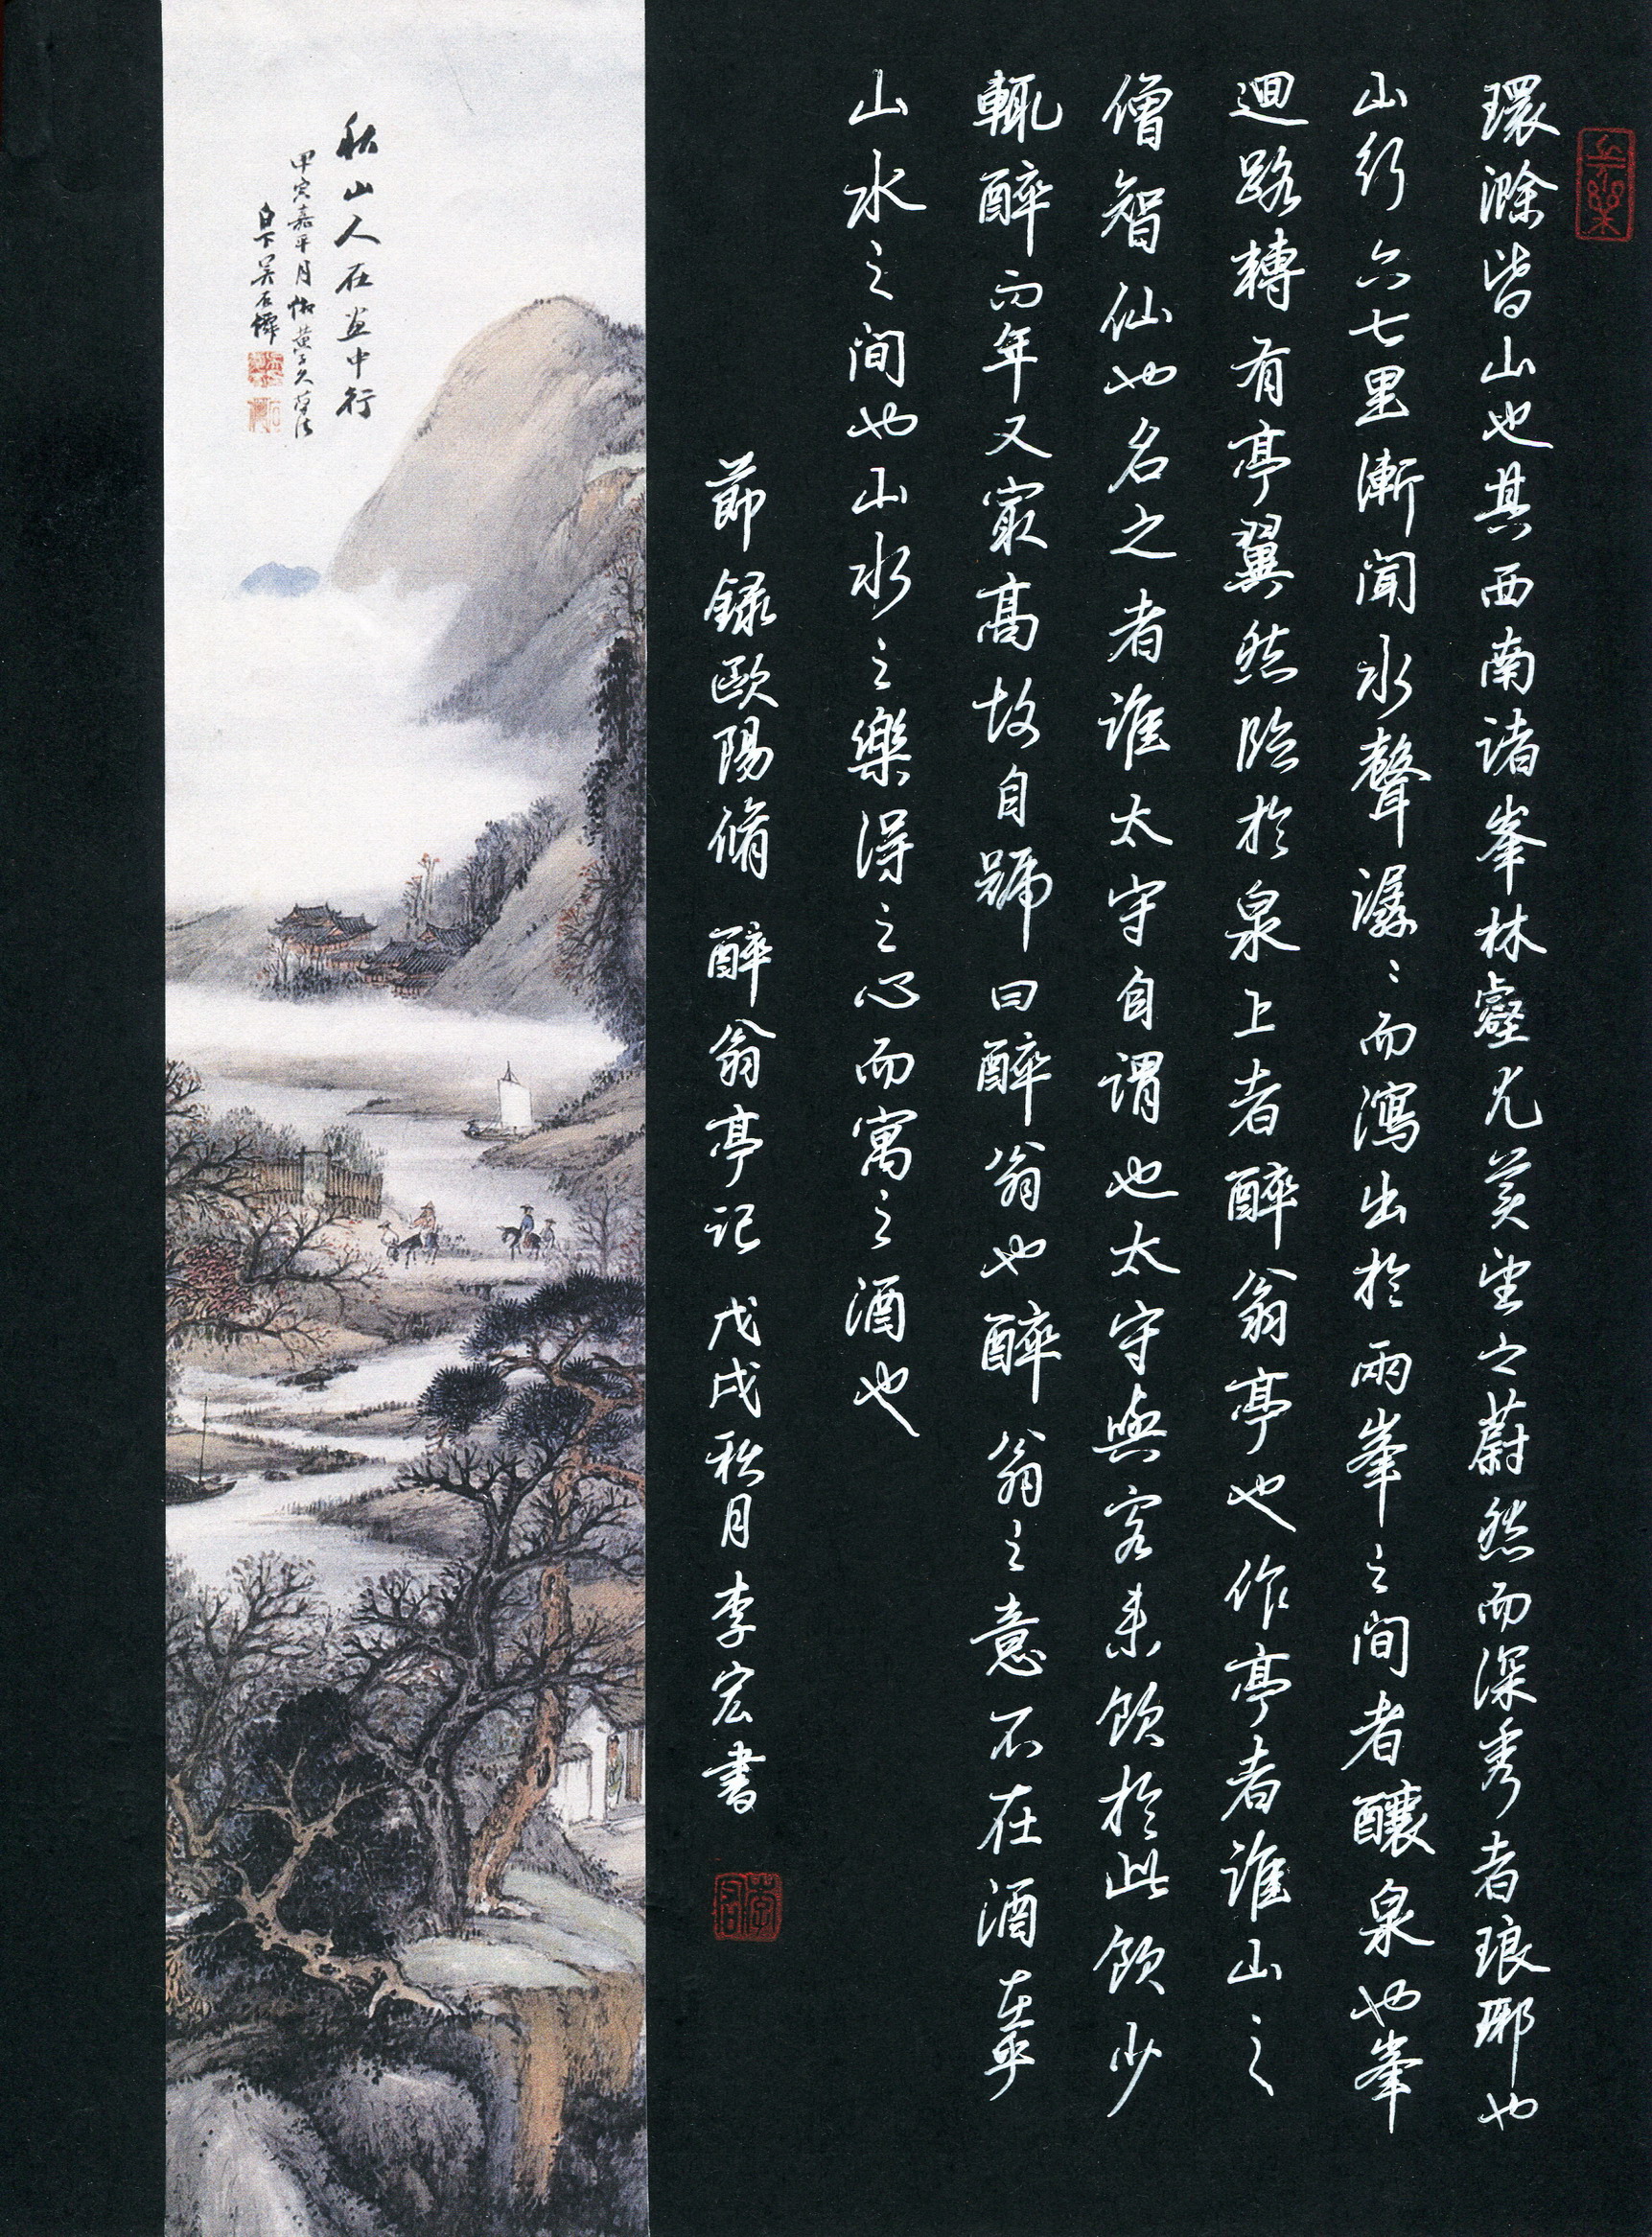 環滁皆山也其西南諸峯林壑尤美望之蔚然而深秀者琅琊也
山行六七里漸聞水聲潺〻而瀉出於兩峯之間者釀泉也峯
迴路轉有亭翼然臨於泉上者醉翁亭也作亭者誰山之
僧智仙也名之者誰太守自謂也太守與客来飲於此飲少
輒醉而年又最高故自號曰醉翁也醉翁之意不在酒在乎
山水之間也山水之樂得之心而寓之酒也
節録歐陽脩 醉翁亭記 戊戌秋月李宏書
秋山人在畫中行
甲寅嘉平月仿黄子久筆法
白下吴石僊